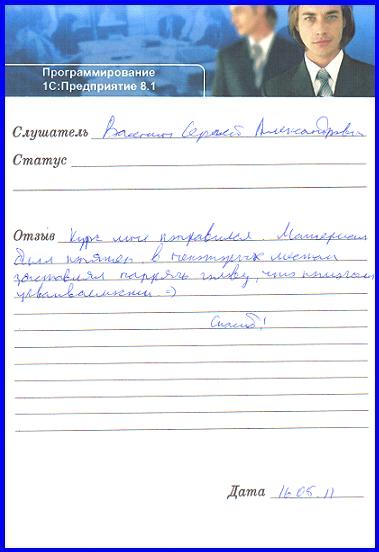 Программирование
1С:Предприятие 8.1
Слушатель Сергей Александрович
Статус
Отзыв Курс мне понравился. Материал
был понятен, в некоторых местах
заставлял напрячь голову, что помогало
усваиваемости =)
Спасибо!
Дата 16.05.11